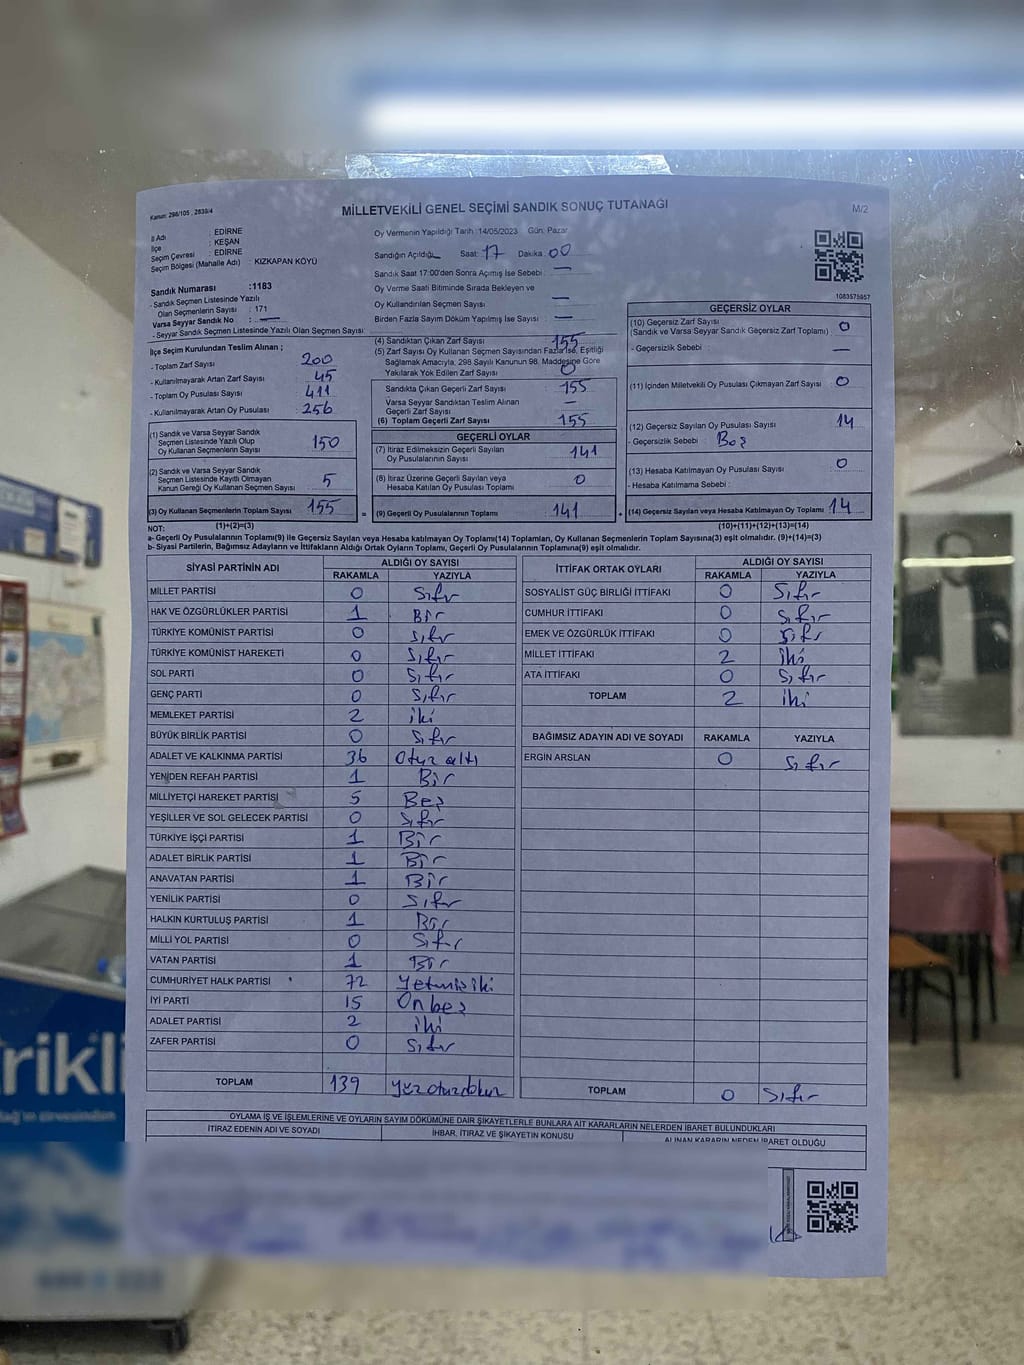 Kanun: 298/105 , 2839/4
MİLLETVEKİLİ GENEL SEÇİMİ SANDIK SONUÇ TUTANAĞI
M/2
İl Adı : EDİRNE
İlçe : KEŞAN
Seçim Çevresi : EDİRNE
Seçim Bölgesi (Mahalle Adı) : KIZKAPAN KÖYÜ
Oy Vermenin Yapıldığı Tarih :14/05/2023 Gün: Pazar
Sandığın Açıldığı Saat: 17 Dakika: 00
Sandık Saat 17:00'den Sonra Açımış İse Sebebi: —
Oy Verme Saati Bitiminde Sırada Bekleyen ve
Oy Kullandırılan Seçmen Sayısı —
Birden Fazla Sayım Döküm Yapılmış İse Sayısı : —
1083575957
Sandık Numarası :1183
- Sandık Seçmen Listesinde Yazılı
Olan Seçmenlerin Sayısı : 171
Varsa Seyyar Sandık No : —
- Seyyar Sandık Seçmen Listesinde Yazılı Olan Seçmen Sayısı
İlçe Seçim Kurulundan Teslim Alınan ;
- Toplam Zarf Sayısı : 200
- Kullanılmayarak Artan Zarf Sayısı : 45
- Toplam Oy Pusulası : 411
- Kullanılmayarak Artan Oy Pusulası : 256
(1) Sandık ve Varsa Seyyar Sandık
Seçmen Listesinde Yazılı Olup
Oy Kullanan Seçmenlerin Sayısı 150
(2) Sandık ve Varsa Seyyar Sandık
Seçmen Listesinde Kayıtlı Olmayan
Kanun Gereği Oy Kullanan Seçmen Sayısı 5
(3) Oy Kullanan Seçmenlerin Toplam Sayısı 155 =
(4) Sandıktan Çıkan Zarf Sayısı 155
(5) Zarf Sayısı Oy Kullanan Seçmen Sayısından Fazla İse, Eşitliği
Sağlamak Amacıyla, 298 Sayılı Kanunun 98. Maddesine Göre
Yakılarak Yok Edilen Zarf Sayısı 0
Sandıkta Çıkan Geçerli Zarf Sayısı 155
Varsa Seyyar Sandıktan Teslim Alınan
Geçerli Zarf Sayısı —
(6) Toplam Geçerli Zarf Sayısı 155
GEÇERLİ OYLAR
(7) İtiraz Edilmeksizin Geçerli Sayılan
Oy Pusulalarının Sayısı 141
(8) İtiraz Üzerine Geçerli Sayılan veya
Hesaba Katılan Oy Pusulası Toplamı 0
(9) Geçerli Oy Pusulalarının Toplamı 141 +
GEÇERSİZ OYLAR
(10) Geçersiz Zarf Sayısı
(Sandık ve Varsa Seyyar Sandık Geçersiz Zarf Toplamı) : 0
- Geçersizlik Sebebi : —
(11) İçinden Milletvekili Oy Pusulası Çıkmayan Zarf Sayısı : 0
(12) Geçersiz Sayılan Oy Pusulası Sayısı : 14
- Geçersizlik Sebebi : Boş
(13) Hesaba Katılmayan Oy Pusulası Sayısı : 0
- Hesaba Katılmama Sebebi :
(14) Geçersiz Sayılan veya Hesaba Katılmayan Oy Toplamı : 14
NOT: (1)+(2)=(3)
(10)+(11)+(12)+(13)=(14)
a- Geçerli Oy Pusulalarının Toplamı(9) ile Geçersiz Sayılan veya Hesaba katılmayan Oy Toplamı(14) Toplamları, Oy Kullanan Seçmenlerin Toplam Sayısına(3) eşit olmalıdır. (9)+(14)=(3)
b- Siyasi Partilerin, Bağımsız Adayların ve İttifakların Aldığı Ortak Oyların Toplamı, Geçerli Oy Pusulalarının Toplamına(9) eşit olmalıdır.
SİYASİ PARTİNİN ADI ALDIĞI OY SAYISI
RAKAMLA YAZIYLA
MİLLET PARTİSİ 0 Sıfır
HAK VE ÖZGÜRLÜKLER PARTİSİ 1 Bir
TÜRKİYE KOMÜNİST PARTİSİ 0 Sıfır
TÜRKİYE KOMÜNİST HAREKETİ 0 Sıfır
SOL PARTİ 0 Sıfır
GENÇ PARTİ 0 Sıfır
MEMLEKET PARTİSİ 2 iki
BÜYÜK BİRLİK PARTİSİ 0 Sıfır
ADALET VE KALKINMA PARTİSİ 36 Otuz altı
YENİDEN REFAH PARTİSİ 1 Bir
MİLLİYETÇİ HAREKET PARTİSİ 5 Beş
YEŞİLLER VE SOL GELECEK PARTİSİ 0 Sıfır
TÜRKİYE İŞÇİ PARTİSİ 1 Bir
ADALET BİRLİK PARTİSİ 1 Bir
ANAVATAN PARTİSİ 1 Bir
YENİLİK PARTİSİ 0 Sıfır
HALKIN KURTULUŞ PARTİSİ 1 Bir
MİLLİ YOL PARTİSİ 0 Sıfır
VATAN PARTİSİ 1 Bir
CUMHURİYET HALK PARTİSİ 72 Yetmiş iki
İYİ PARTİ 15 Onbeş
ADALET PARTİSİ 2 iki
ZAFER PARTİSİ 0 Sıfır
TOPLAM 139 Yüz otuz dokuz
İTTİFAK ORTAK OYLARI ALDIĞI OY SAYISI
RAKAMLA YAZIYLA
SOSYALİST GÜÇ BİRLİĞİ İTTİFAKI 0 Sıfır
CUMHUR İTTİFAKI 0 Sıfır
EMEK VE ÖZGÜRLÜK İTTİFAKI 0 Sıfır
MİLLET İTTİFAKI 2 iki
ATA İTTİFAKI 0 Sıfır
TOPLAM 2 iki
BAĞIMSIZ ADAYIN ADI VE SOYADI RAKAMLA YAZIYLA
ERGİN ARSLAN 0 Sıfır
TOPLAM 0 Sıfır
OYLAMA İŞ VE İŞLEMLERİNE VE OYLARIN SAYIM DÖKÜMÜNE DAİR ŞİKAYETLERLE BUNLARA AİT KARARLARIN NELERDEN İBARET BULUNDUKLARI
İTİRAZ EDENİN ADI VE SOYADI
İHBAR, İTİRAZ VE ŞİKAYETİN KONUSU
ALINAN KARARIN NEDEN İBARET OLDUĞU
rikli